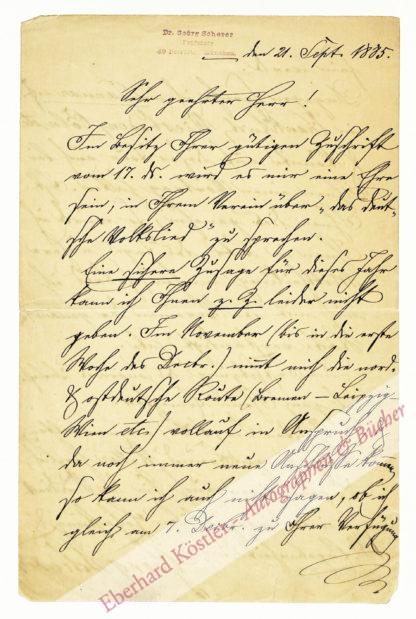 Dr. Georg Scherer
Professor
49 München.
den 21. Sept. 1885.
Sehr geehrter Herr!
Im Besitz Ihrer gütigen Zuschrift
vom 17. ds. wird es mir eine Ehre
sein, in Ihrem Verein über „das deut-
sche Volkslied" zu sprechen.
Eine sichere Zusage für dieses Jahr
kann ich Ihnen z. Z. leider nicht
geben. Im November (bis in die erste
Woche des Decbr.) nimt mich die nord-
& ostdeutsche Route (Bremen – Leipzig-
Wien etc.) vollauf in Anspruch &
da noch immer neue Anschlüsse komen,
so kann ich auch nicht sagen, ob ich
gleich am 7. Decbr. zu Ihrer Verfügung
Eberhard Köstler Autographen & Bücher